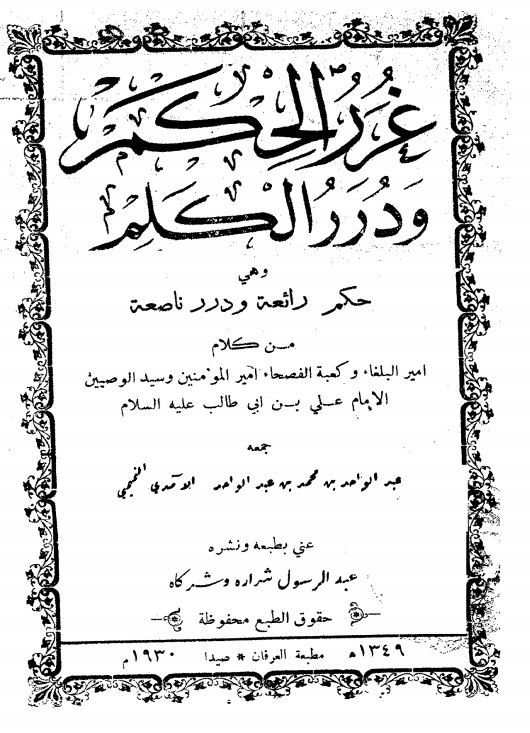 غُرَرُ الحِكَمِ
وَدُرَرُ الكَلِمِ
وهي
حكم رائعة ودرر ناصعة
من كلام
امير البلغاء وكعبة الفصحاء امير المؤمنين وسيد الوصيين
الإمام علي بن ابي طالب عليه السلام
جمعه
عبد الواحد بن محمد بن عبد الواحد الآمدي التميمي
عني بطبعه ونشره
عبد الرسول شراره وشركاه
حقوق الطبع محفوظة
١٣٤٩ھ مطبعة العرفان * صيدا ١٩٣٠م